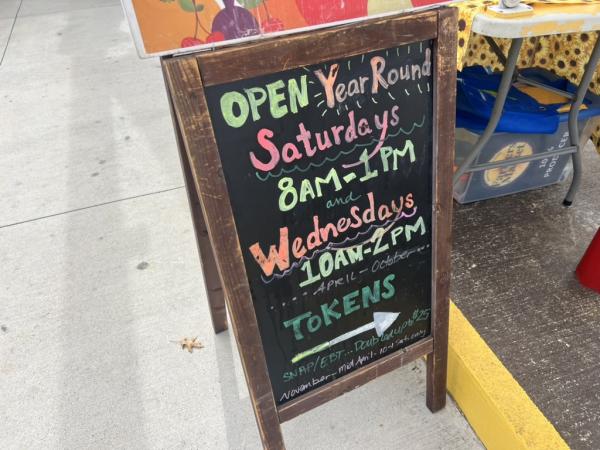 OPEN Year Round
Saturdays
8AM-1PM
and
Wednesdays
10AM-2PM
APRIL - October
TOKENS
SNAP/EBT... Doubled up to $25
November - mid April - 10-1 Sat. only
100%
PRODUCER